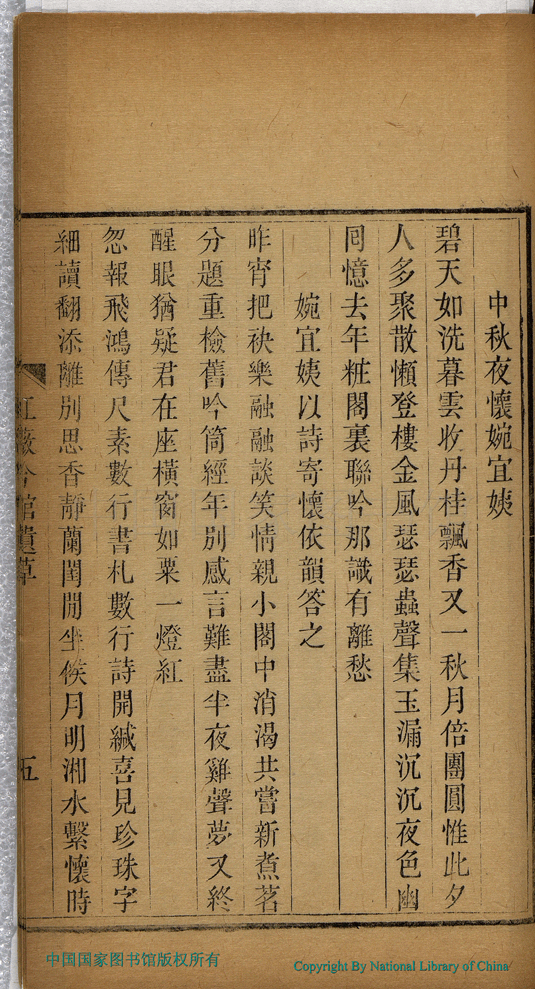 中秋夜懷婉宜姨
碧天如洗暮雲收丹桂飄香又一秋月倍團圓惟此夕
人多聚散懶登樓金風瑟瑟蟲聲集玉漏沉沉夜色幽
囘憶去年粧閣裏聯吟那識有離愁
婉宜姨以詩寄懷依韻答之
昨宵把袂樂融融談笑情親小閣中消渴共嘗新煮茗
分題重檢舊吟筒經年別感言難盡半夜雞聲夢又終
醒眼猶疑君在座橫窗如粟一燈紅
忽報飛鴻傳尺素數行書札數行詩開緘喜見珍珠字
細讀翻添離別思香靜蘭閨閒坐候月明湘水繫懷時
紅薇吟館遺草
五
中国国家图书馆版权所有
Copyright By National Library of China